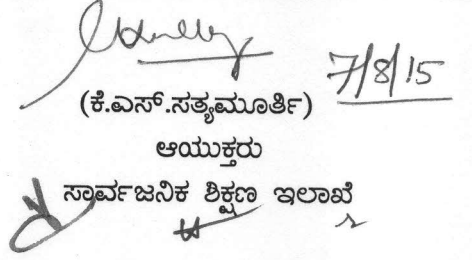 7/8/15
(ಕೆ.ಎಸ್.ಸತ್ಯಮೂರ್ತಿ)
ಆಯುಕ್ತರು
ಸಾರ್ವಜನಿಕ ಶಿಕ್ಷಣ ಇಲಾಖೆ